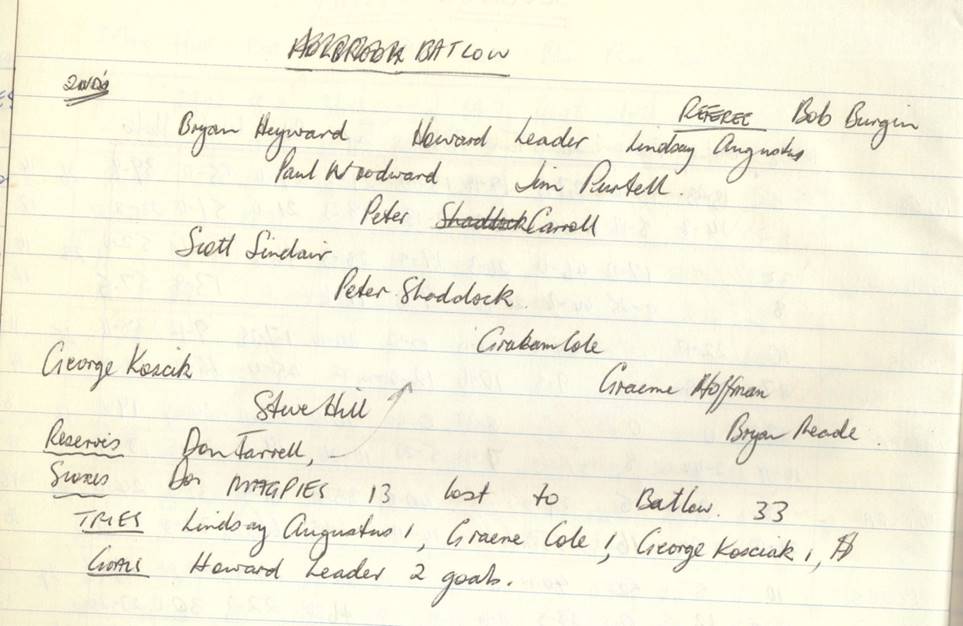 HOLBROOK BATLOW
2ND's
REFEREE Bob Burgin
Bryan Heyward Howard Leader Lindsay Augustus
Paul Woodward Jim Purtell.
Peter Shaddock Carroll
Scott Sinclair
Peter Shaddock.
Graham Cole
George Koscik
Graeme Hoffman
Steve Hill
Bryan Reade.
Reserves Don Farrell,
Scores MAGPIES 13 lost to Batlow. 33
TRIES Lindsay Augustus 1, Graeme Cole 1, George Kosciak 1,
Goals Howard Leader 2 goals.